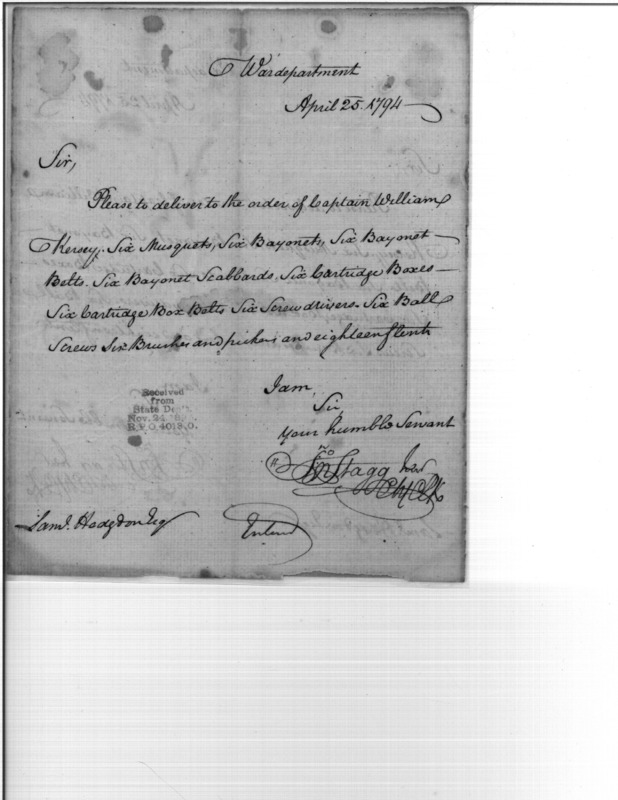 War department
April 25. 1794
Sir,
Please to deliver to the order of Captain William
Kersey, Six Musquets, Six Bayonets, Six Bayonet
Belts. Six Bayonet Scabbards. Six Cartridge Boxes
Six Cartridge Box Belts Six Screw drivers. Six Ball
Screws Six Brushes and pickers and eighteen flints
I am,
Sir
your humble Servant
Jno Stagg Junr
Ch Clk
Received
from
State Dept.
Nov. 24
R.P.O. 4018.0.
Saml. Hodgdon Esq